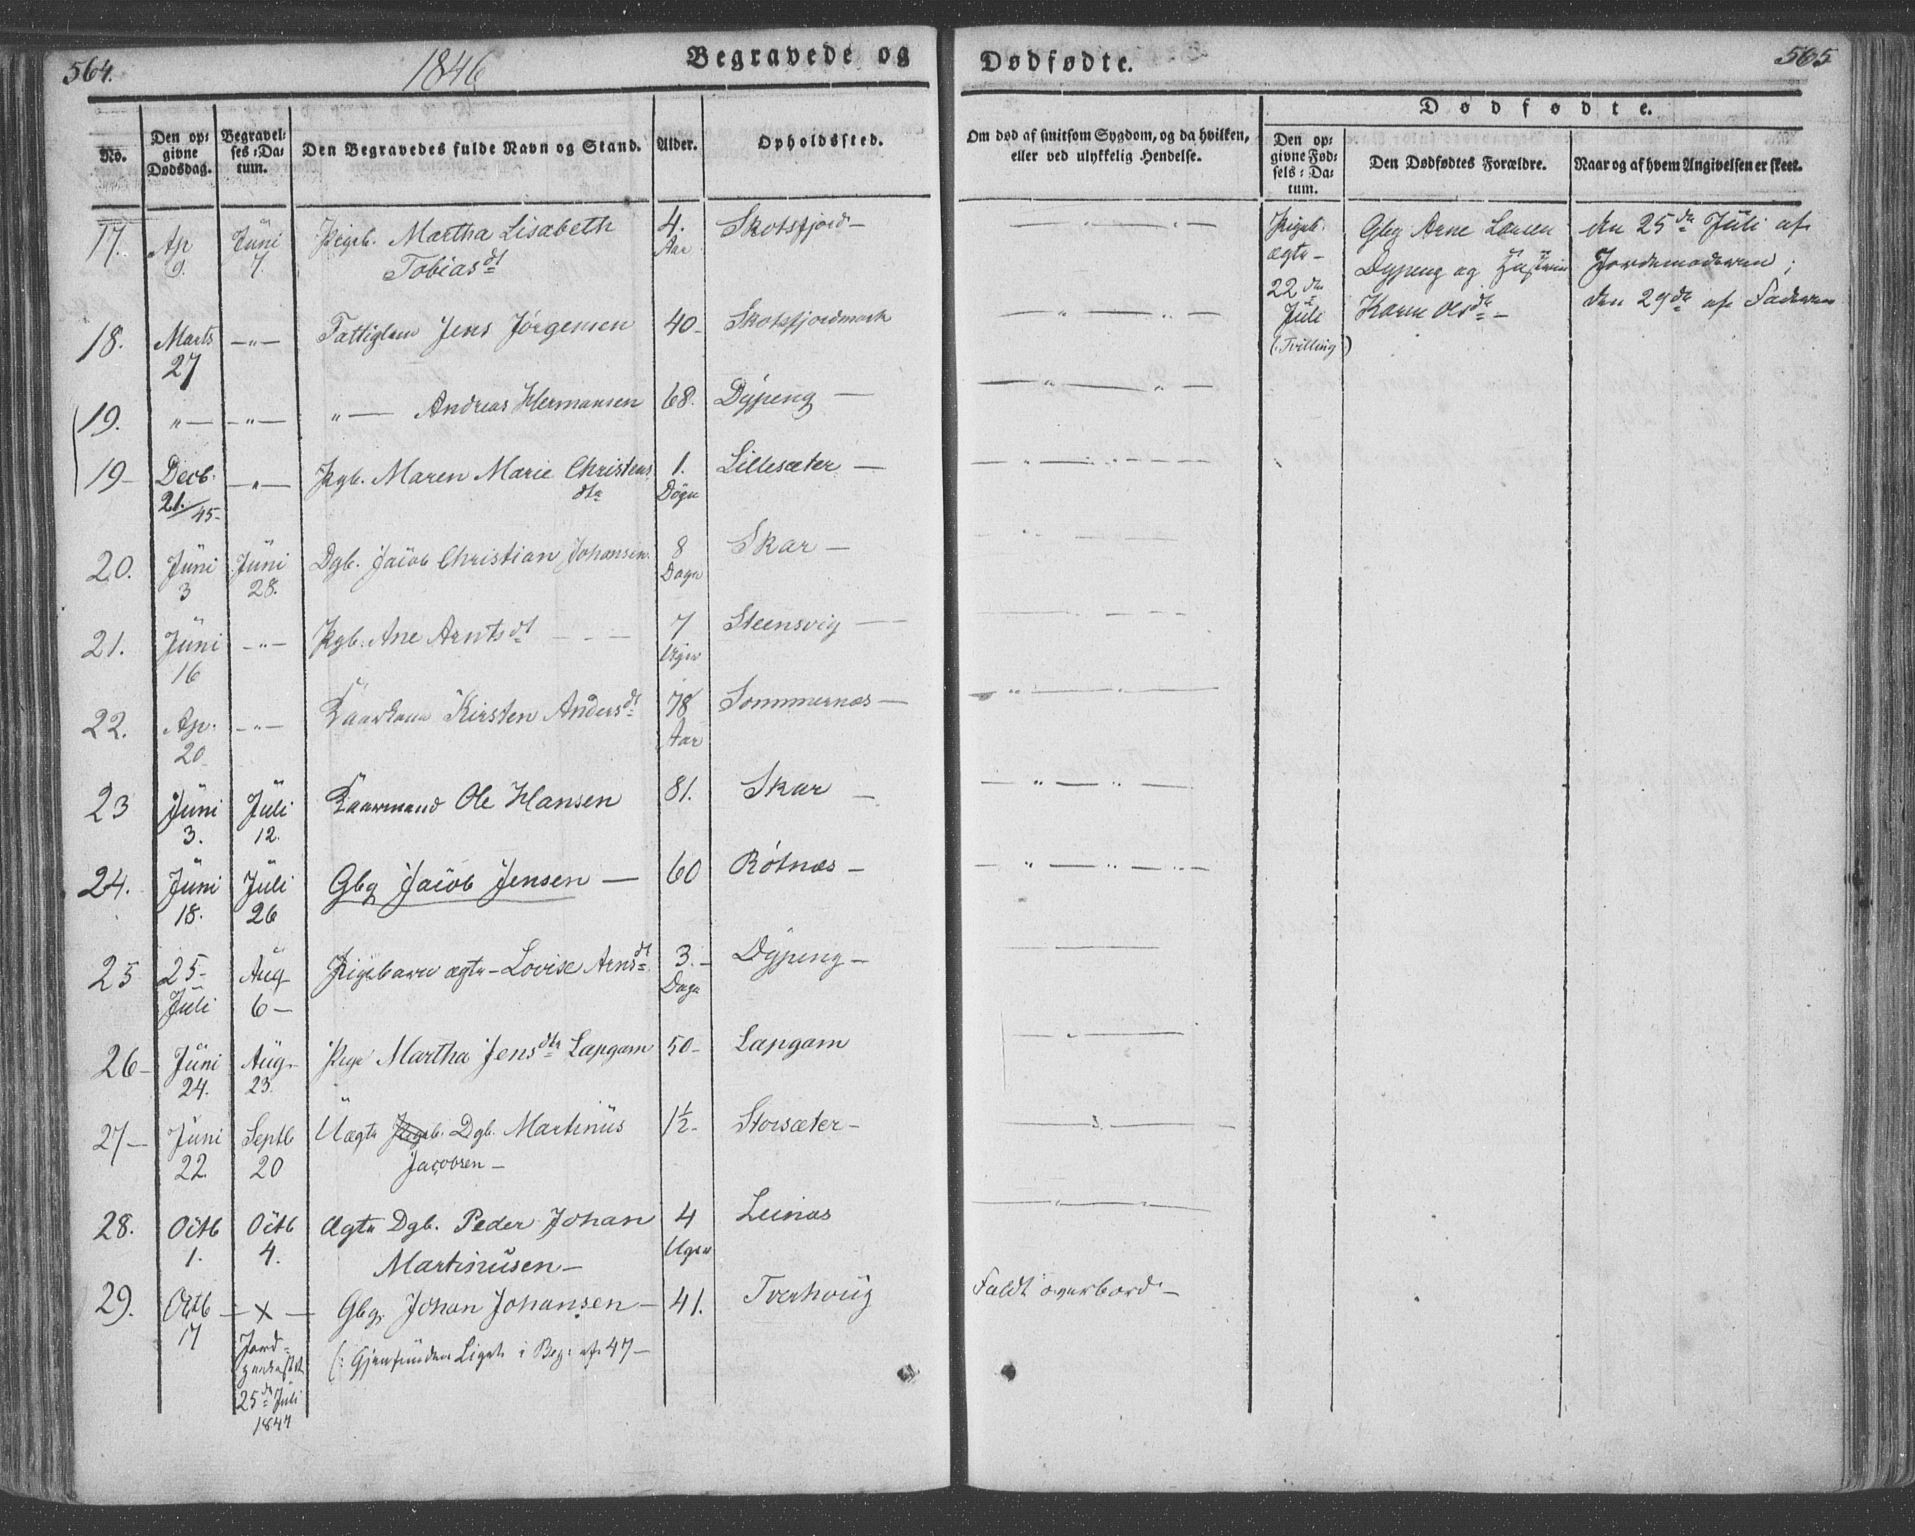 564.
1846
Begravede og
Dødfødte.
565
No.
Den op-
givne
Dødsdag.
Begravel-
ses-Da-
tum.
Den Begravedes fulde Navn og Stand.
Alder.
Opholdssted.
Om død af smitsom Sygdom, og da hvilken,
eller ved ulykkelig Hendelse.
Dødfødte.
Den op-
givne Fød-
sels-Da-
tum.
Den Dødfødtes Forældre.
Naar og af hvem Angivelsen er skeet.
17. Ap 9. Juni 7. Pigeb. Martha Lisabeth
Tobiasdt 4. Aar Skotsfjord —
Pigeb.
ægte —
22de
Juli
(: Tvilling)
Gbg Arne Larsen
Dypeng og Hustrue
Karen Olsdtr —
den 25de Juli af
Jordemoderen;
den 29de af Faderen
18. Marts 27 — " — Fattiglem Jens Jørgensen 40 - Skotsfjordmark
19. " — - " — " — Andreas Hermansen 68. Dypeng —
19 - Decb. 21./45 - — " — Pgb. Maren Marie Christens
dtr 1. Døgn Lillesæter —
20. Juni 3 Juni 28. Dgb. Jacob Christian Johansen 8 Dage Skar —
21. Juni 16 — " — Pgb. Ane Arntsdt — — — 7 Uger Steensvig — —
22. Ap. 20 — " — Kaarkone Kirsten Andersdt 78 Aar Sommernæs —
23 Juni 3. Juli 12. Kaarmand Ole Hansen 81. Skar —
24. Juni 18. Juli 26 Gbg Jacob Jensen — 60 Rötnæs —
25 25 - Juli Aug 6 — Pigebarn ægte - Lovise Arnsdt 3. - Dage Dypeng —
26 - Juni 24. Aug. 23. Pige Martha Jensdtr Lapgam 50 - Lapgam
27 — Juni 22. Septb 20 Uægte Pigeb. Dgb. Martinus
Jacobsen — 1½ - Storsæter —
28. Octb 1. Octb 4. Ægte Dgb. Peder Johan
Martinusen — 4 Uger Leinæs
29. Octb 17 — x — Gbg. Johan Johansen — 41. Tverhoug Faldt overbord —
Jord-
25de Juli
1847
(: Gjenfunden Liget i Beg. af 47 —